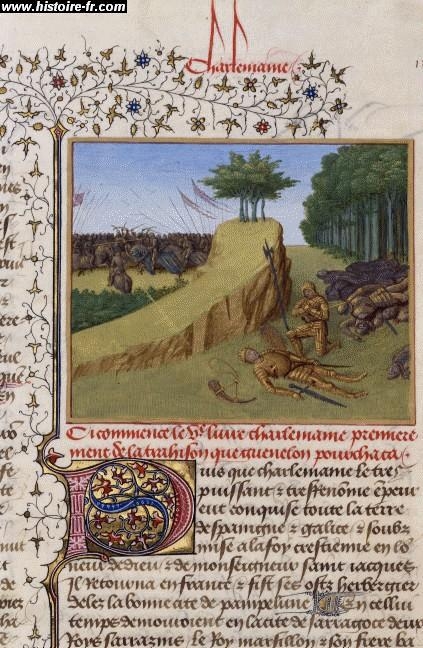 www.histoire-fr.com
Charlemaine
Ci commence le Ve livre charlemaine premiere
ment de la trahison que guenelon pourchaca
Puis que charlemaine le tres
puissant & tresrenōme emper
eut conquise toute la terre
despaingne & galice & soubz
mise a la foy crestienne en lo
neur de dieu & de monseigneur saint iacques
Il retourna en france & fist ses ostz herbergier
delez la bonne cite de pampelune En cellui
temps demouroient en la cite de sarragoce deux
Roys sarrazins le Roy marsillon & son frere ba